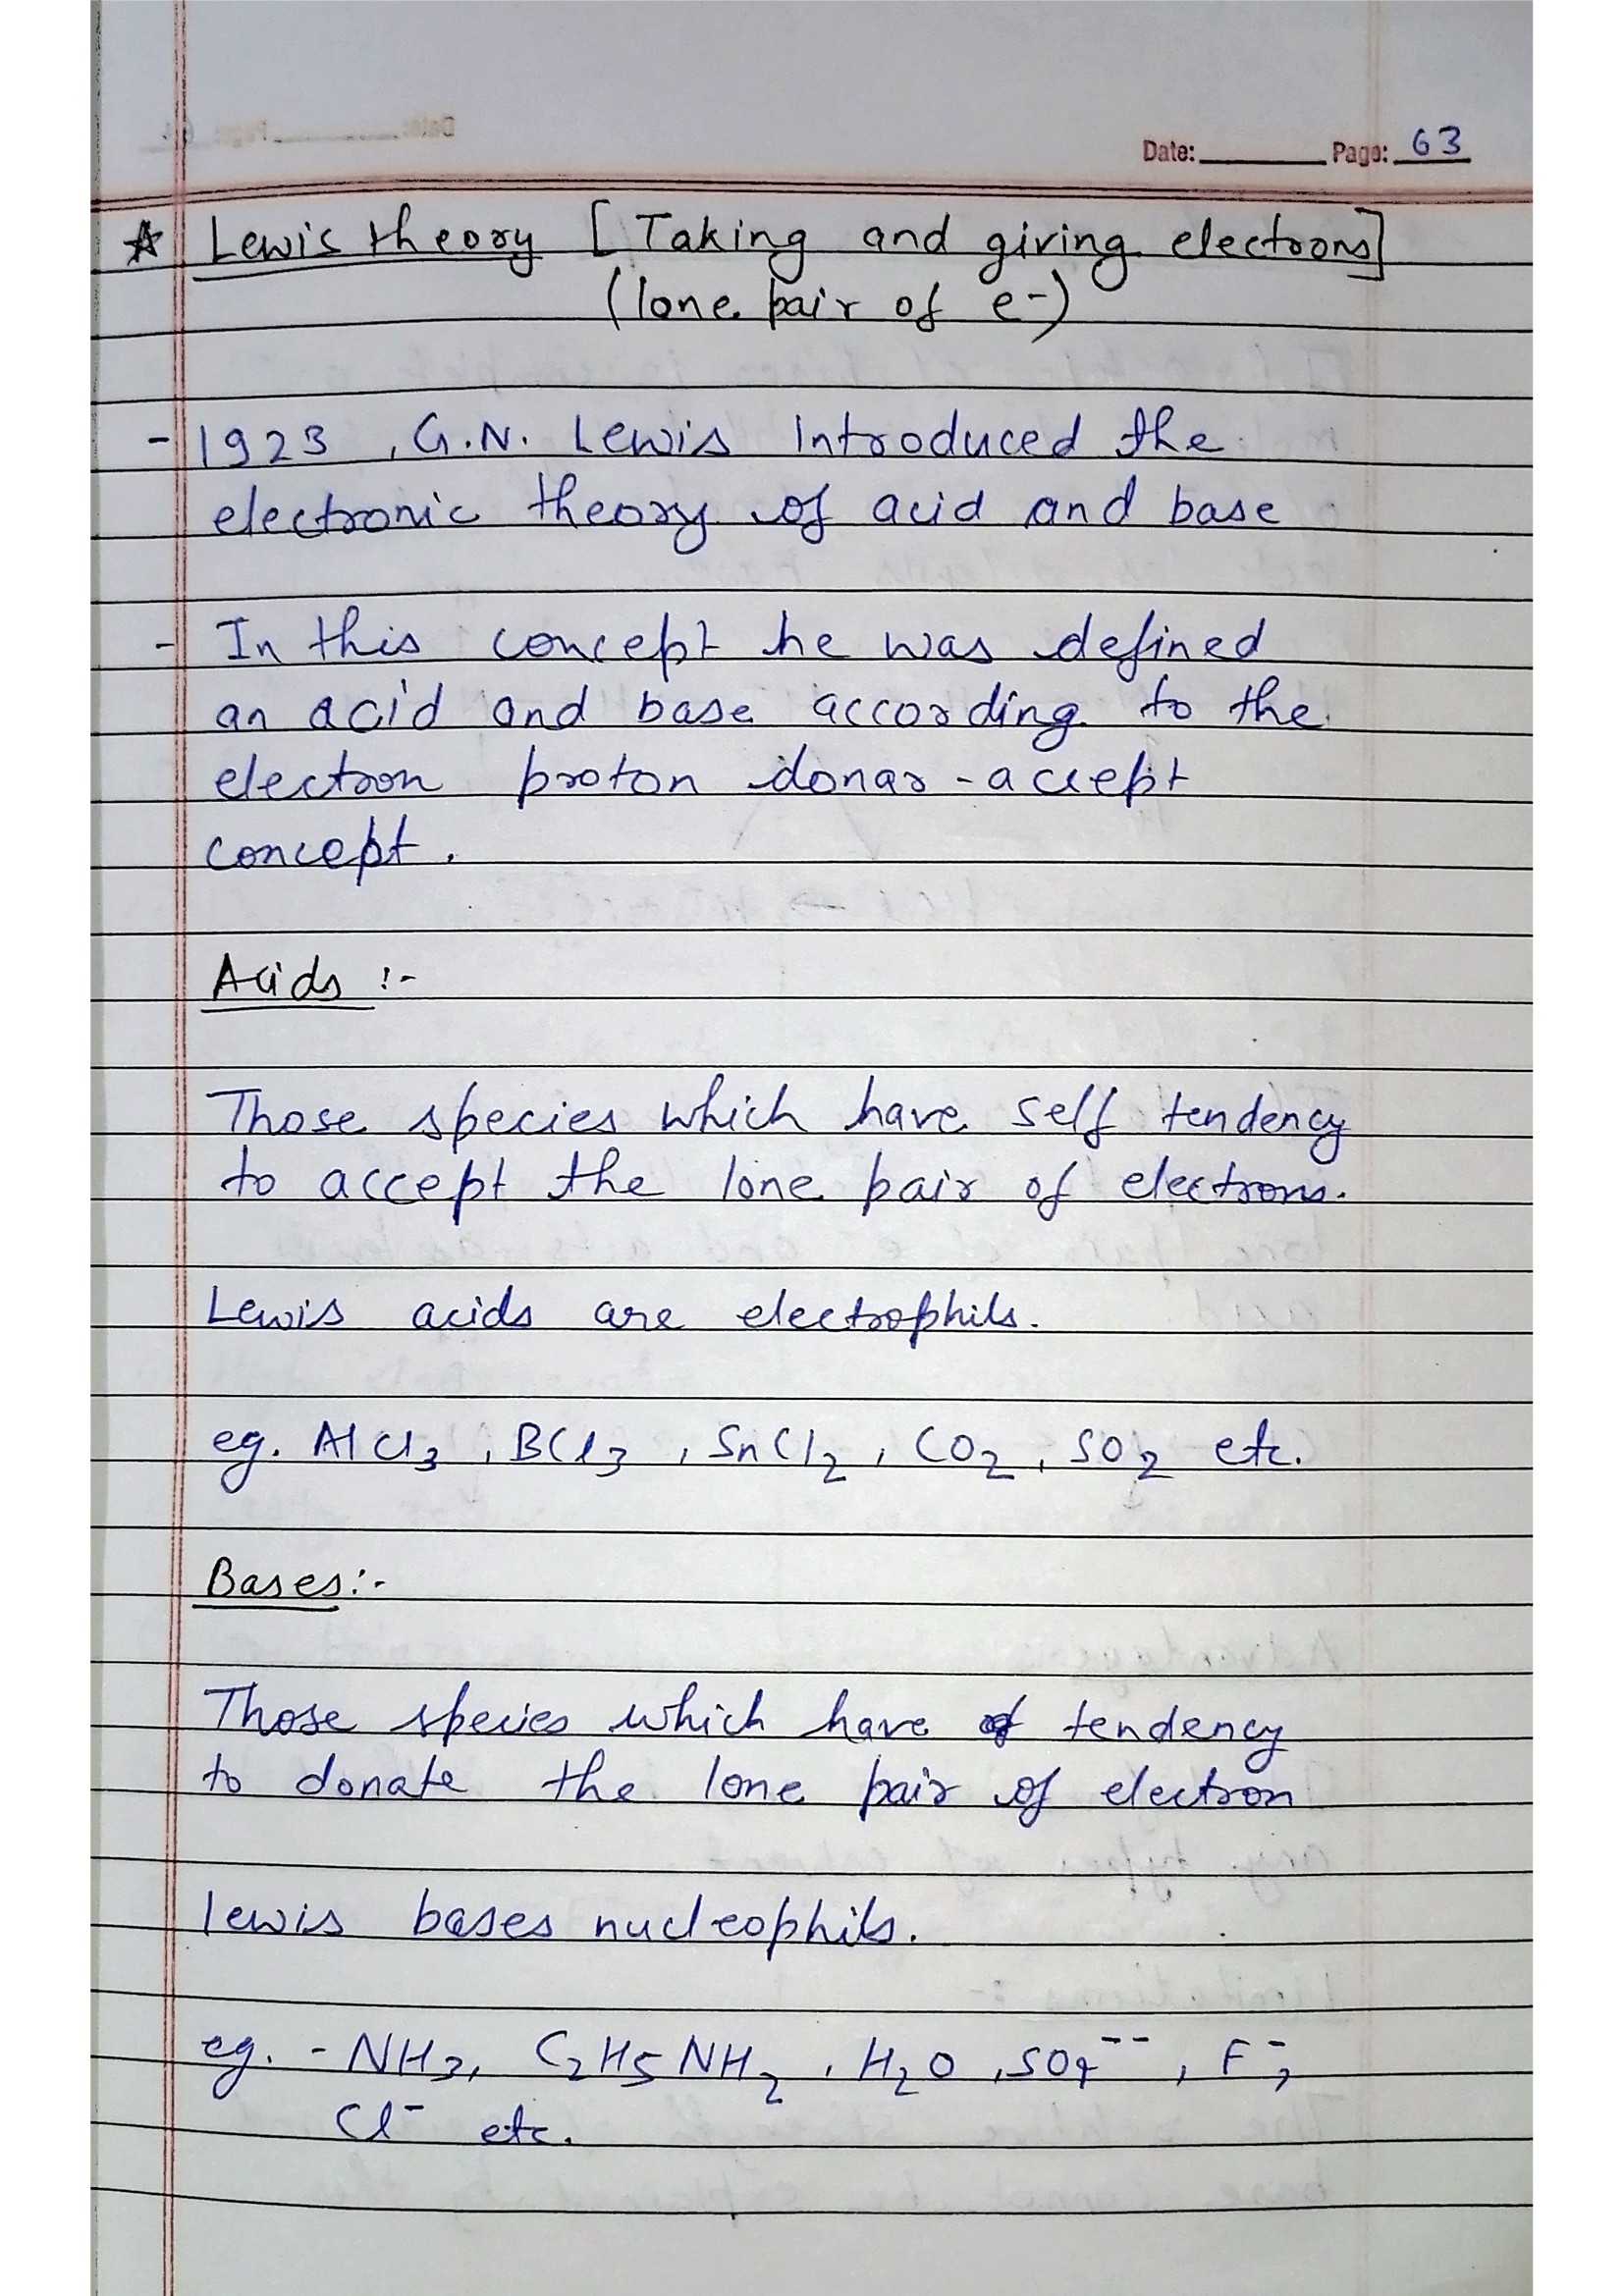 Date: Page: 63
☆ Lewis theory [Taking and giving electrons]
(lone pair of e-)
- 1923, G.N. Lewis Introduced the
electronic theory of acid and base
- In this concept he was defined
an acid and base according to the
electron proton donar - accept
concept.
Acids :-
Those species which have self tendency
to accept the lone pair of electrons.
Lewis acids are electrophils.
eg. AlCl3, BCl3, SnCl2, CO2, SO2 etc.
Bases :-
Those species which have tendency
to donate the lone pair of electron
lewis bases nucleophils.
eg. - NH3, C2H5NH2, H2O, SO4--, F-,
Cl- etc.